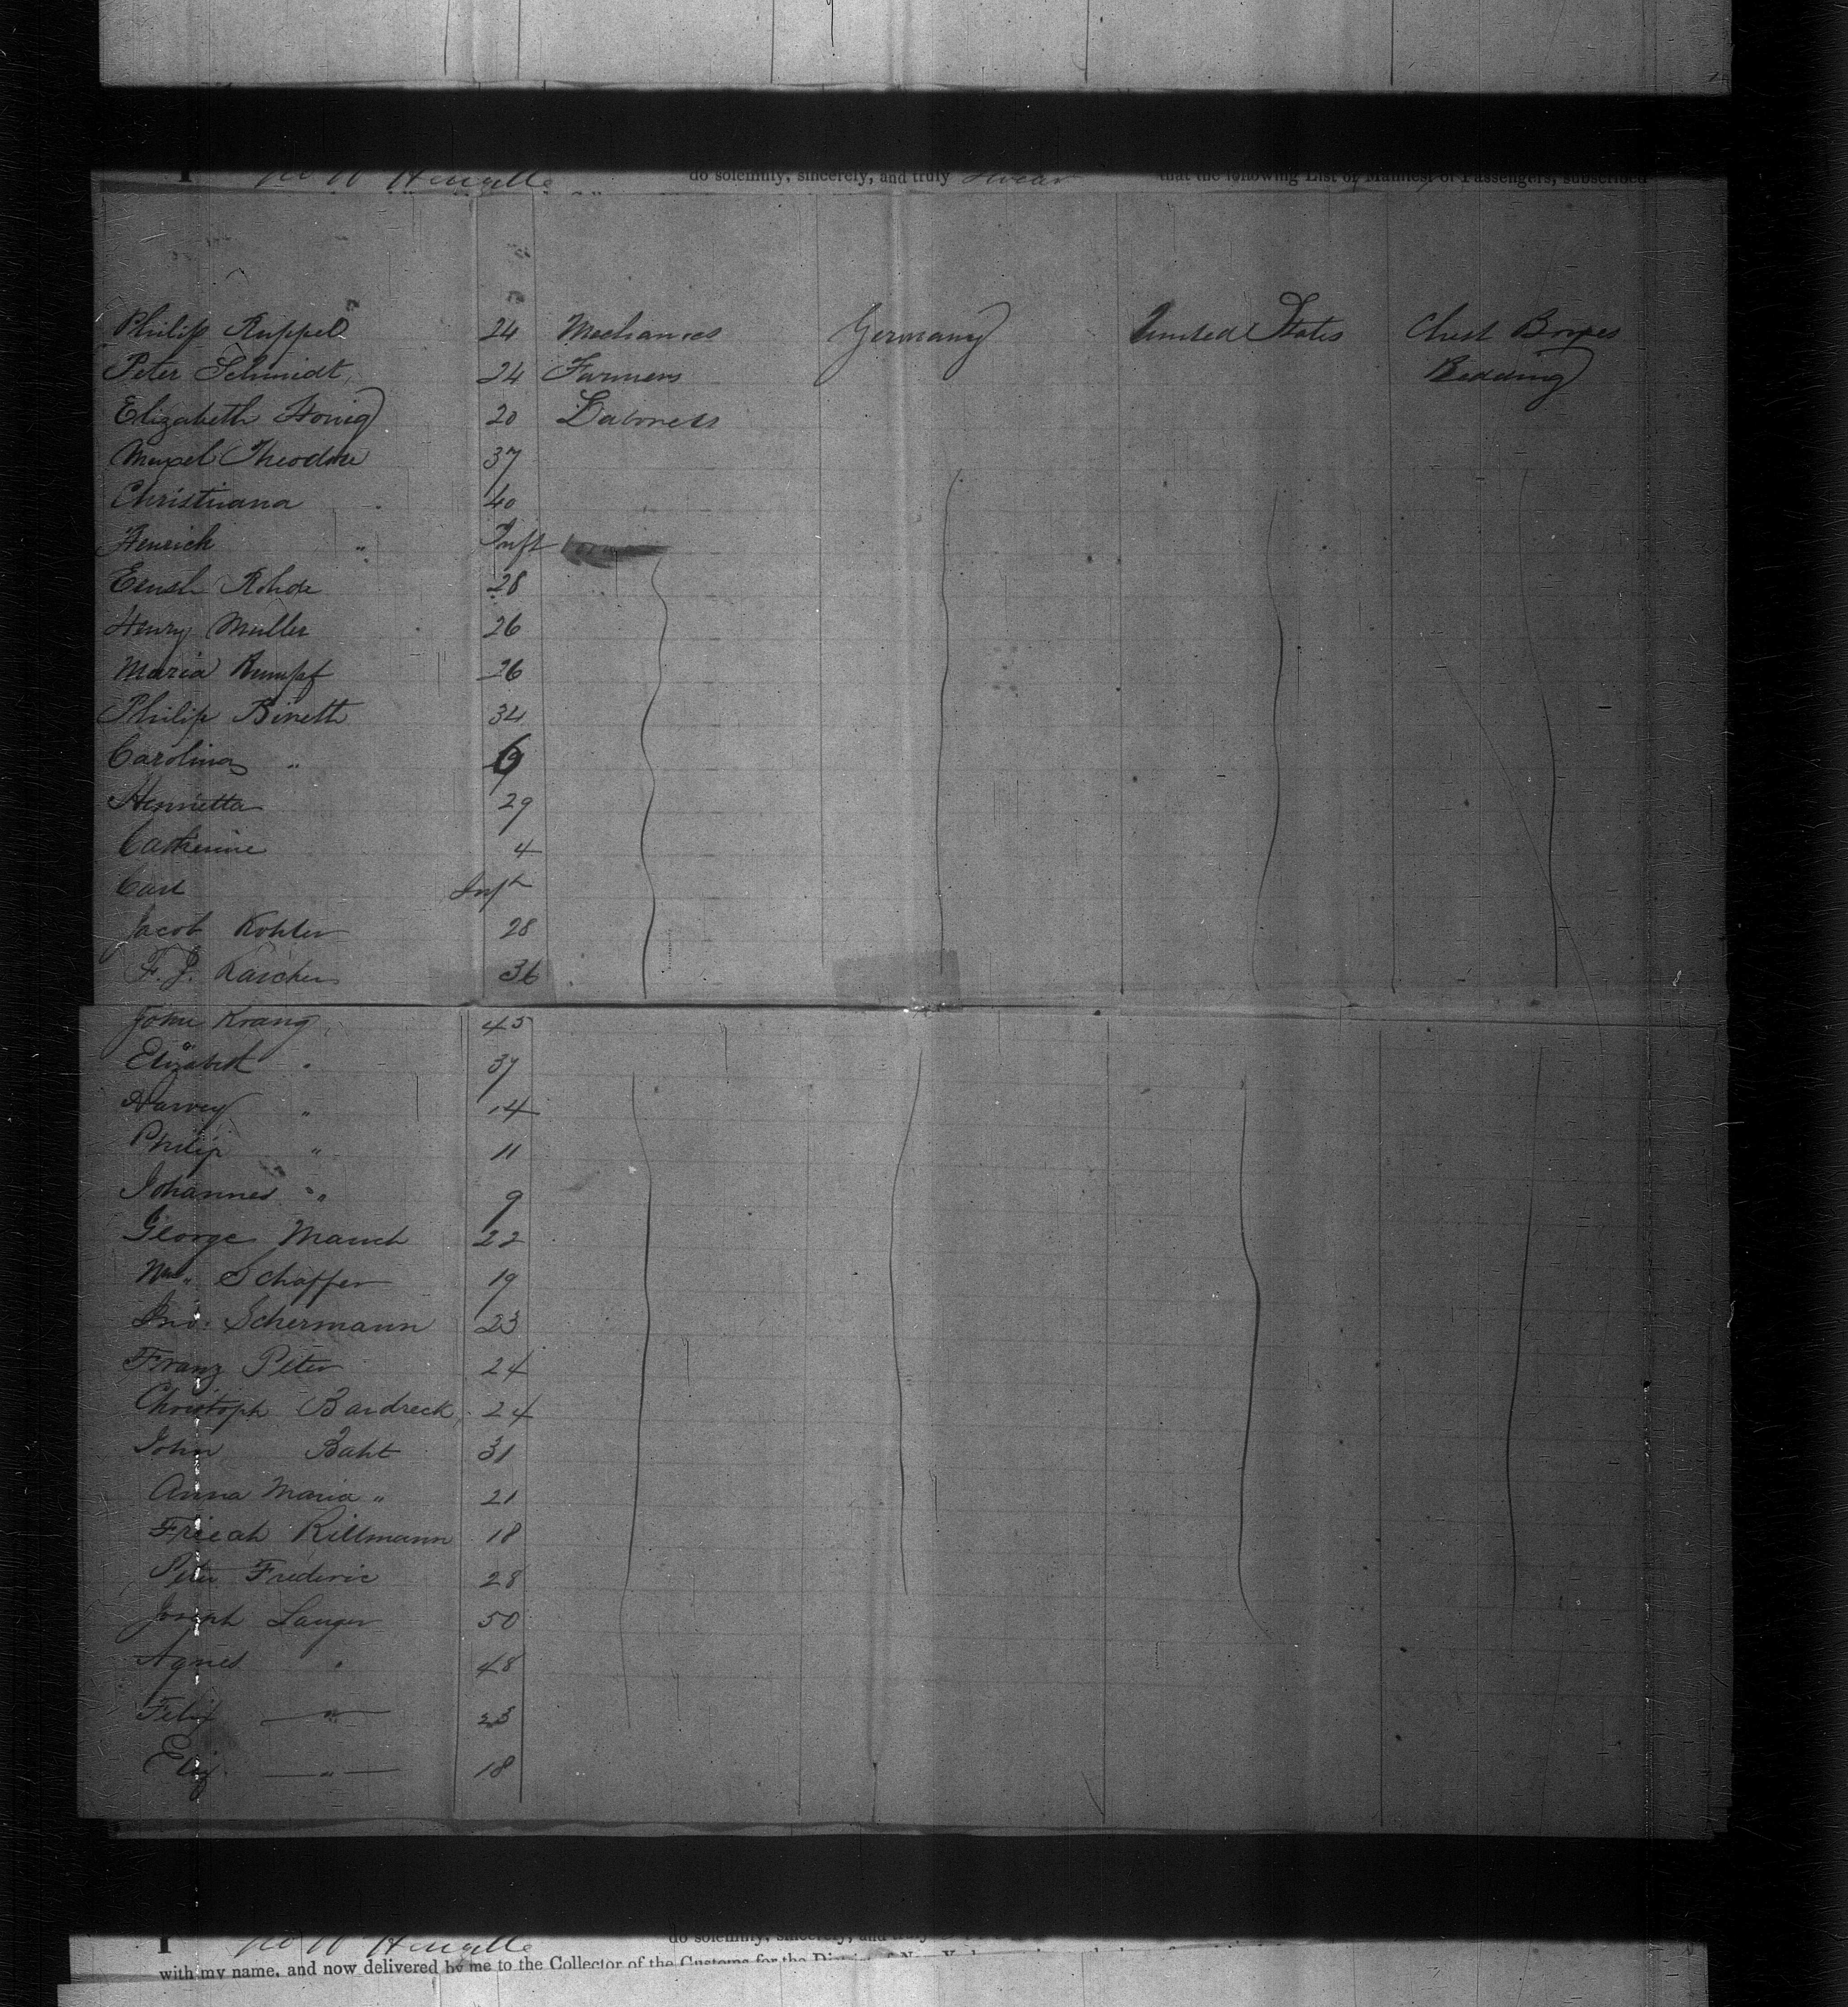 do solemnly, sincerely, and truly swear that the following List or Manifest of Passengers, subscribed
Philip Ruppel 24 Mechanics Germany United States Chest Boxes
Peter Schmidt 24 Farmers Bedding
Elizabeth Honig 20 Laborers
Theodore 37
Christiana 40
Henrich " Inft
Ernst Rohde 28
Henry Muller 26
Maria Rumpf 26
Philip Bineth 34
Carolina "
Henrietta 29
Catherine 4
Carl Inft
Jacob Kohler 28
F. J. 36
John Krang 45
Elizabeth " 37
Harvey " 14
Philip " 11
Johannes " 9
George Mauch 22
Wm. Schaffer 19
Jno. Schermann 23
Franz Peter 24
Christoph Bardreck 24
John Baht 31
Anna Maria " 21
Rillmann 18
Peter Frederic 28
Joseph Langer 50
Agnes " 48
Felix " 23
Eliz. " 18
do solemnly, sincerely, and truly
with my name, and now delivered by me to the Collector of the Customs for the District of New York